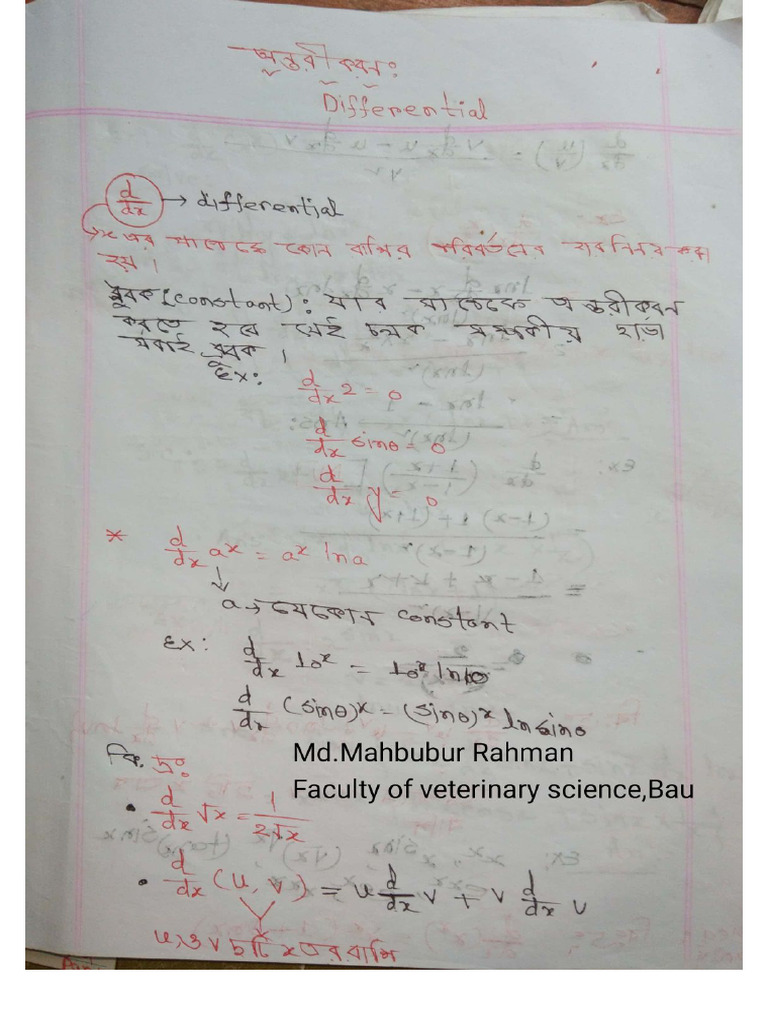 অন্তরীকরন:
Differential
d/dx → differential
→ x এর সাপেক্ষে কোন রাশির পরিবর্তনের হার নির্নয় করা
হয়।
ধ্রুবক (constant): যার সাপেক্ষে অন্তরীকরন
করতে হবে সেই চলক
সবাই ধ্রুবক।
Ex: d/dx 2 = 0
d/dx sinθ = 0
d/dx y = 0
* d/dx aˣ = aˣ lna
↓
a → যেকোন constant
Ex: d/dx 10ˣ = 10ˣ ln10
d/dx (sinθ)ˣ = (sinθ)ˣ ln sinθ
Md.Mahbubur Rahman
বি. দ্র:
Faculty of veterinary science,Bau
• d/dx √x = 1/2√x
• d/dx (u, v) = u d/dx v + v d/dx u
u ও v x এর রাশি